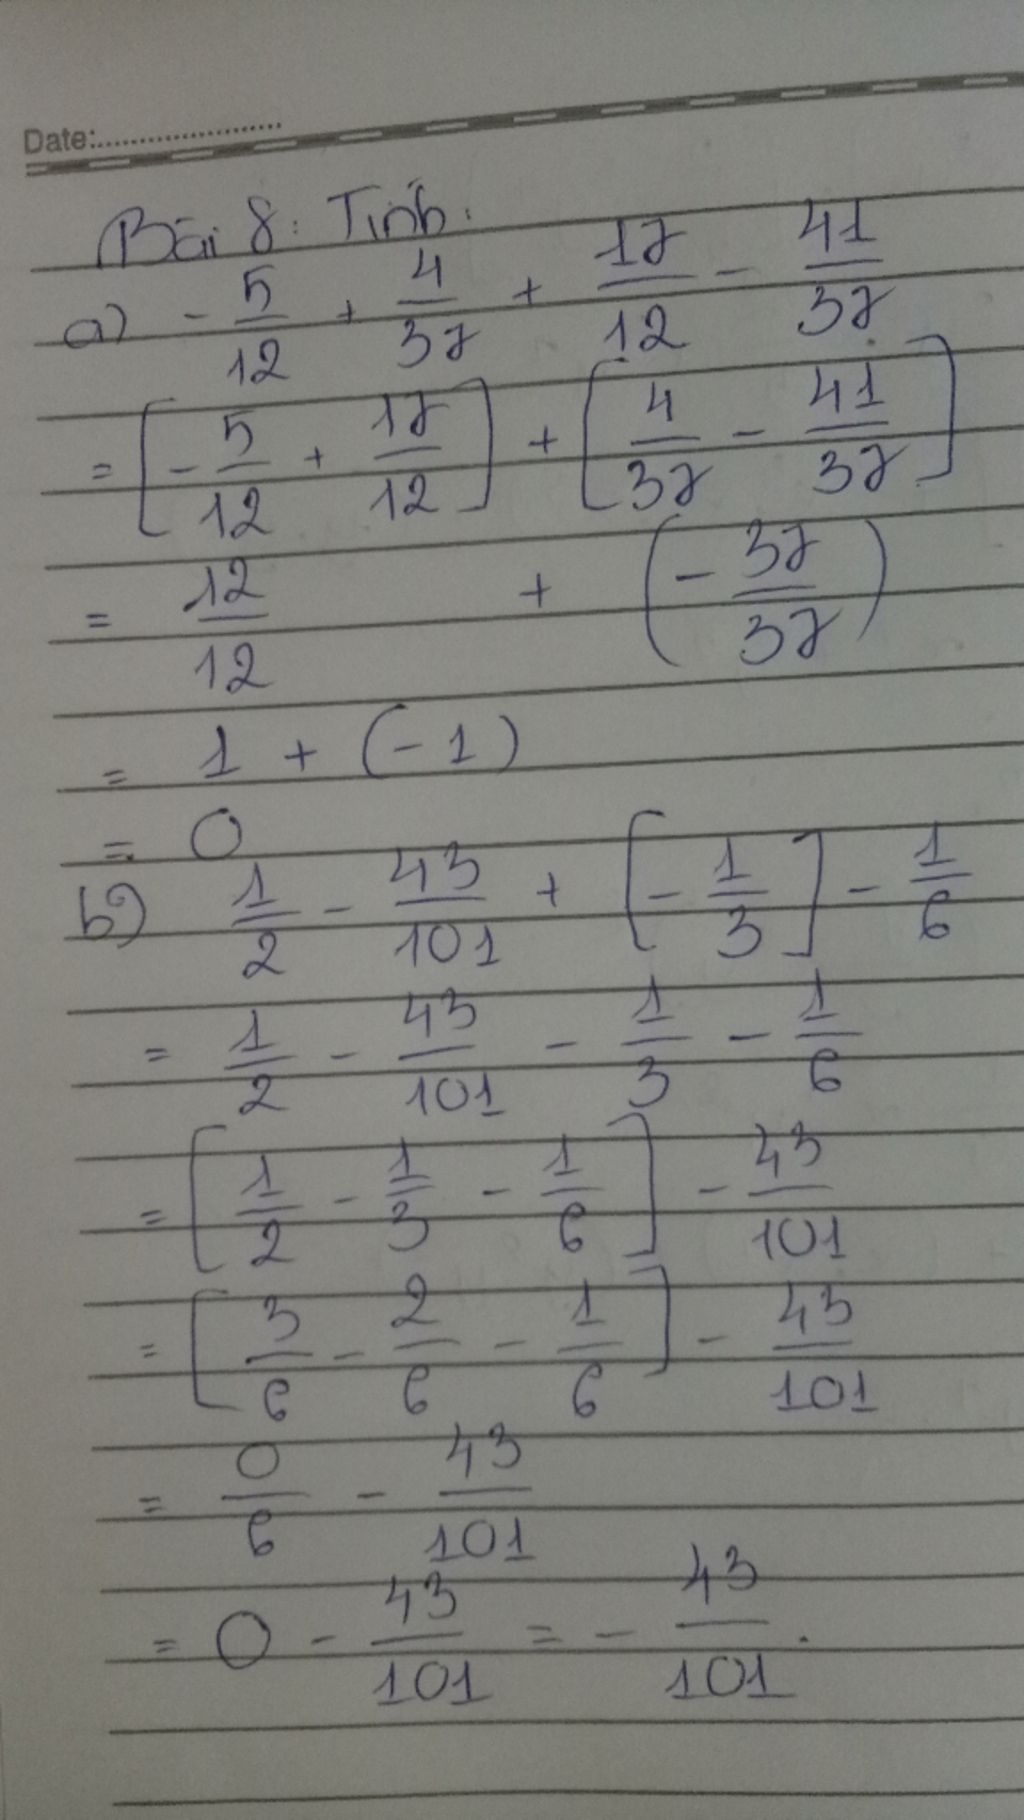 Date:
Bài 8: Tính.
a) - 5/12 + 4/37 + 17/12 - 41/37
= [- 5/12 + 17/12] + [4/37 - 41/37]
= 12/12 + (- 37/37)
= 1 + (- 1)
= 0
b) 1/2 - 43/101 + [- 1/3] - 1/6
= 1/2 - 43/101 - 1/3 - 1/6
= [1/2 - 1/3 - 1/6] - 43/101
= [3/6 - 2/6 - 1/6] - 43/101
= 0/6 - 43/101
= 0 - 43/101 = - 43/101.